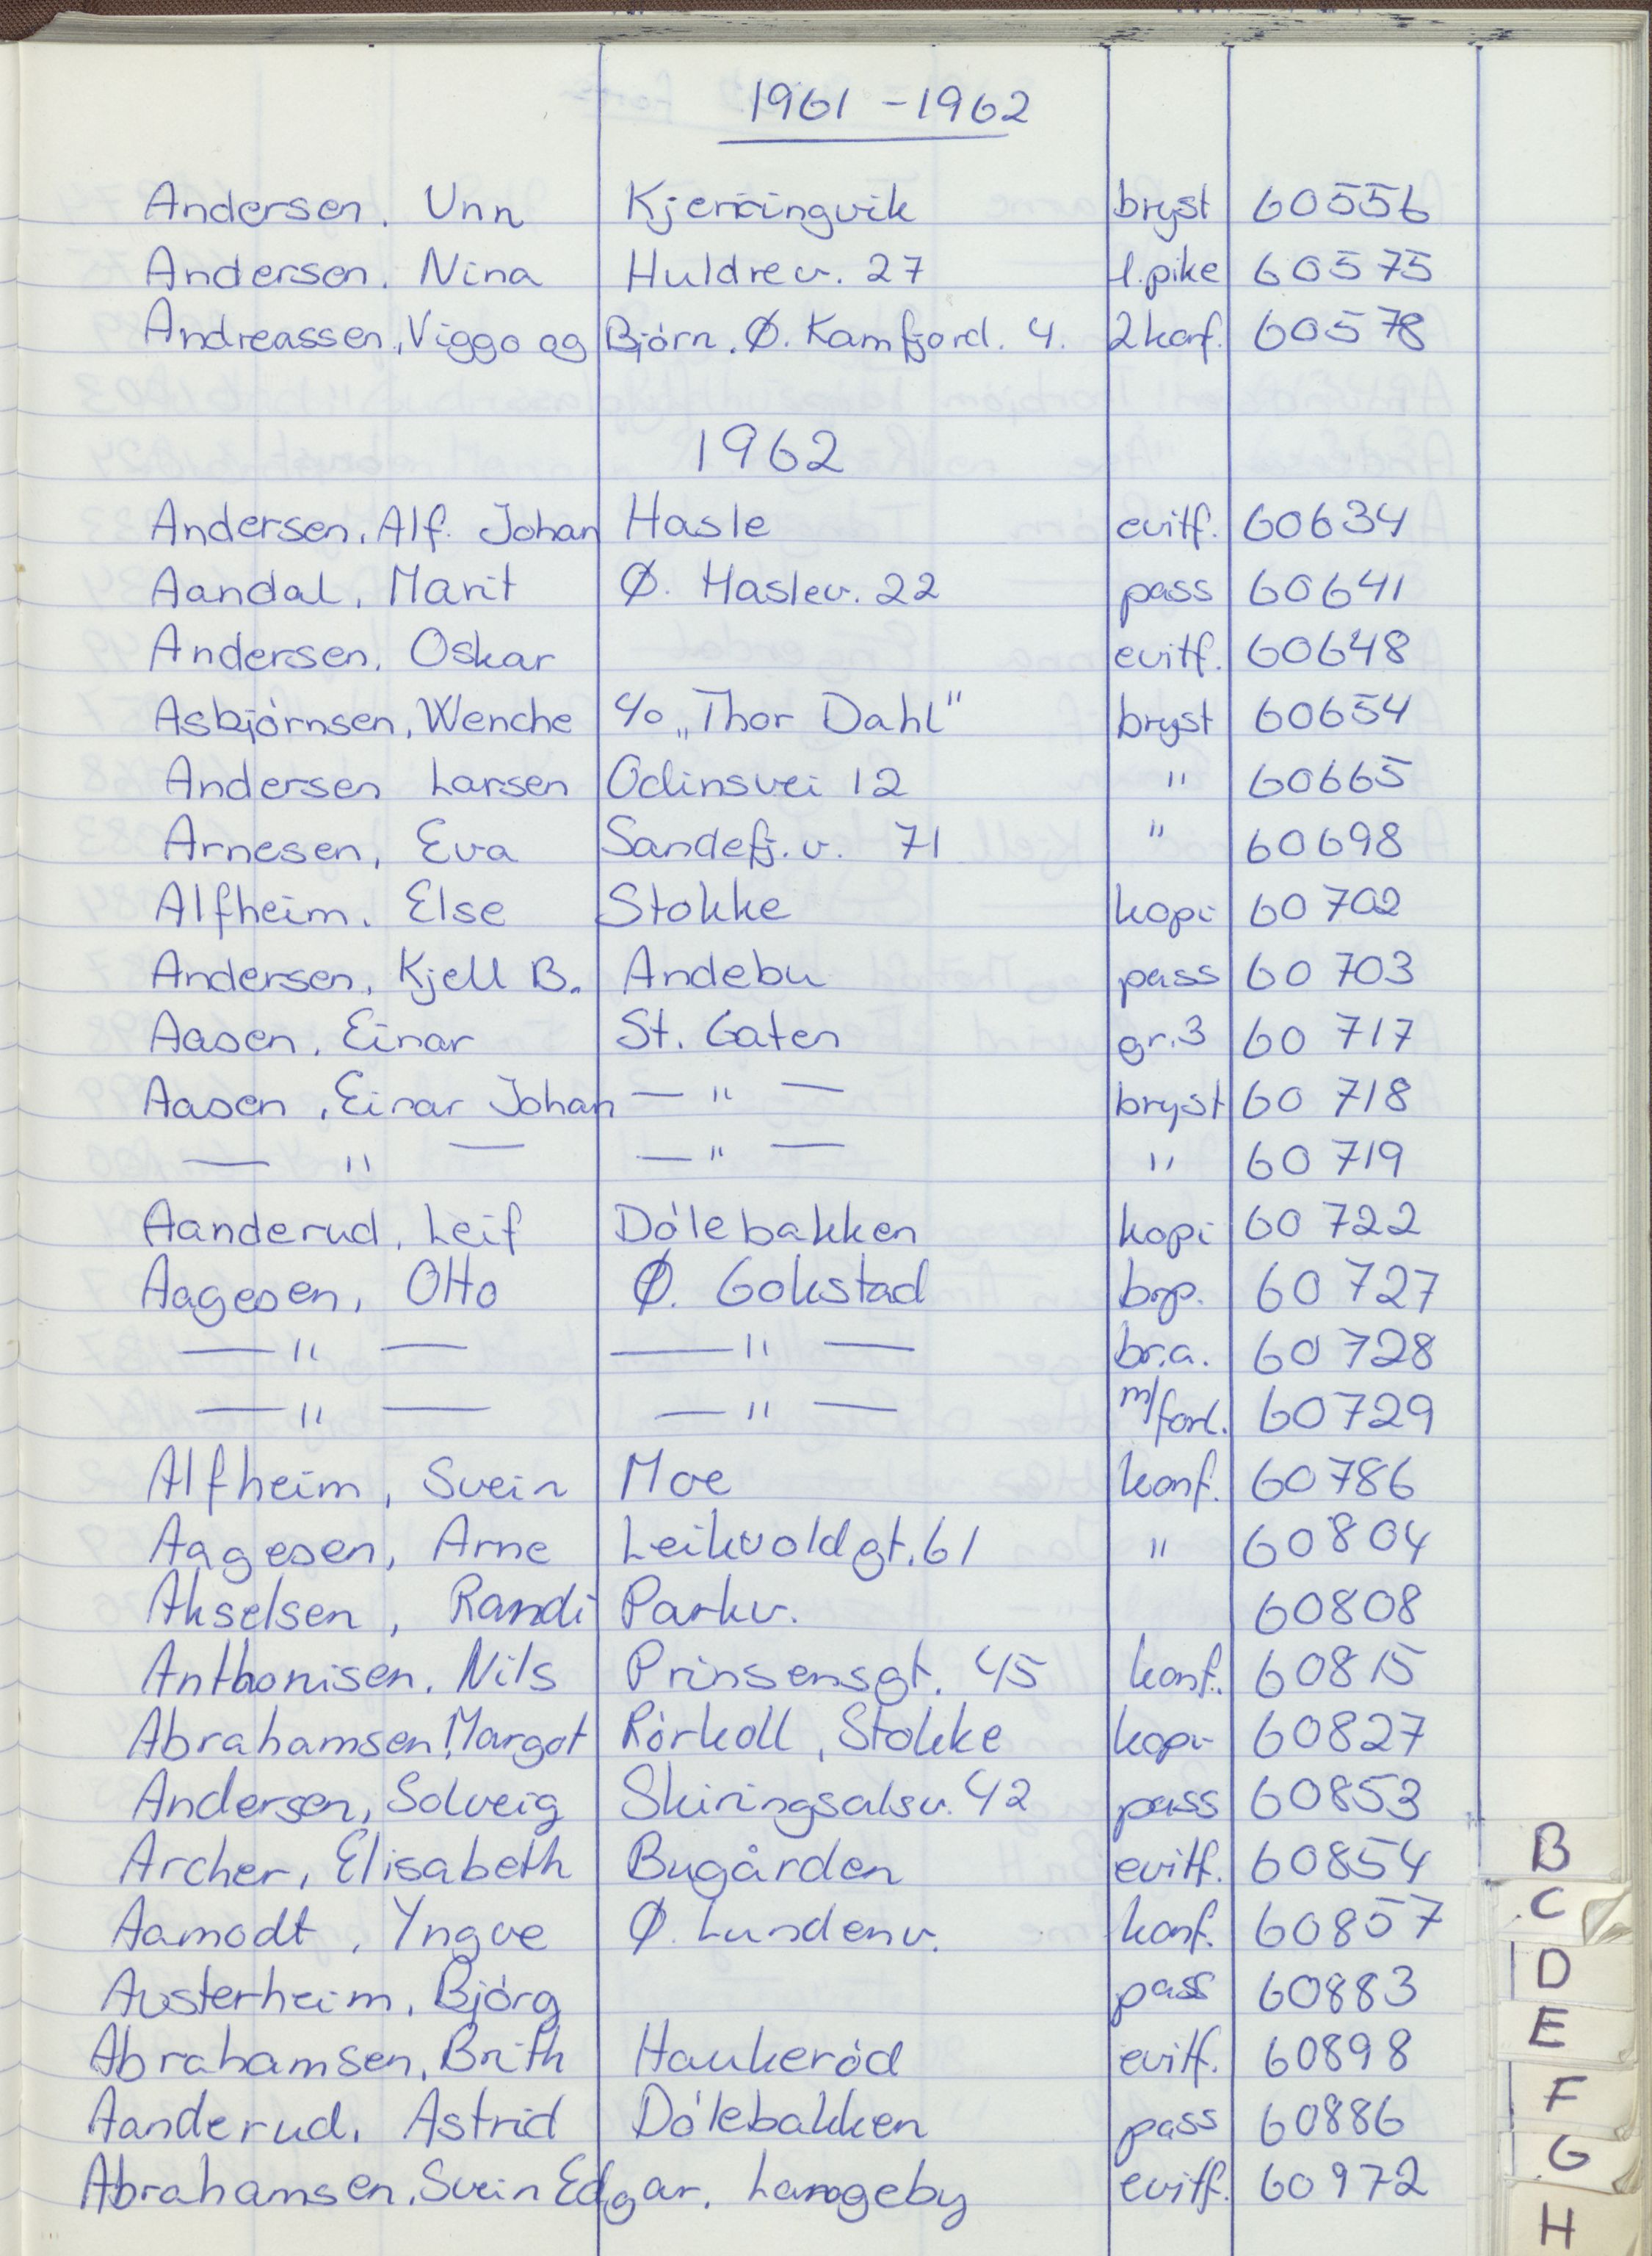 1961 - 1962
Andersen, Unn Kjerringvik bryst 60556
Andersen, Nina Huldrev. 27 1.pike 60575
Andreassen, Viggo og Björn. Ø. Kamfjord. 4. 2 konf. 60578
1962
Andersen, Alf. Johan Hasle evitf. 60634
Aandal, Marit Ø. Haslev. 22 pass 60641
Andersen, Oskar evitf. 60648
Asbjörnsen, Wenche c/o „Thor Dahl" bryst 60654
Andersen Larsen Odinsvei 12 " 60665
Arnesen, Eva Sandefj. v. 71 " 60698
Alfheim, Else Stokke kopi 60702
Andersen, Kjell B. Andebu pass 60703
Aasen, Einar St. Gaten gr.3 60 717
Aasen, Einar Johan — " — bryst 60 718
— " — — " — " 60 719
Aanderud, Leif Dölebakken kopi 60 722
Aagesen, Otto Ø. Gokstad brp. 60 727
— " — — " — br.a. 60 728
— " — — " — m/forl. 60729
Alfheim, Svein Moe konf. 60786
Aagesen, Arne Leikvoldgt. 61 " 60804
Akselsen, Randi Parkv. 60808
Anthonisen, Nils Prinsensgt. 45 konf. 60815
Abrahamsen, Margot Rörkoll, Stokke kopi 60827
Andersen, Solveig Skiringsalsv. 42 pass 60853
Archer, Elisabeth Bugården evitf. 60854
Aamodt, Yngve Ø. Lundenv. konf. 60857
Austerheim, Björg pass 60883
Abrahamsen, Brith Haukeröd evitf. 60898
Aanderud, Astrid Dölebakken pass 60886
Abrahamsen, Svein Edgar. Langeby evitf. 60972
B
C
D
E
F
G
H